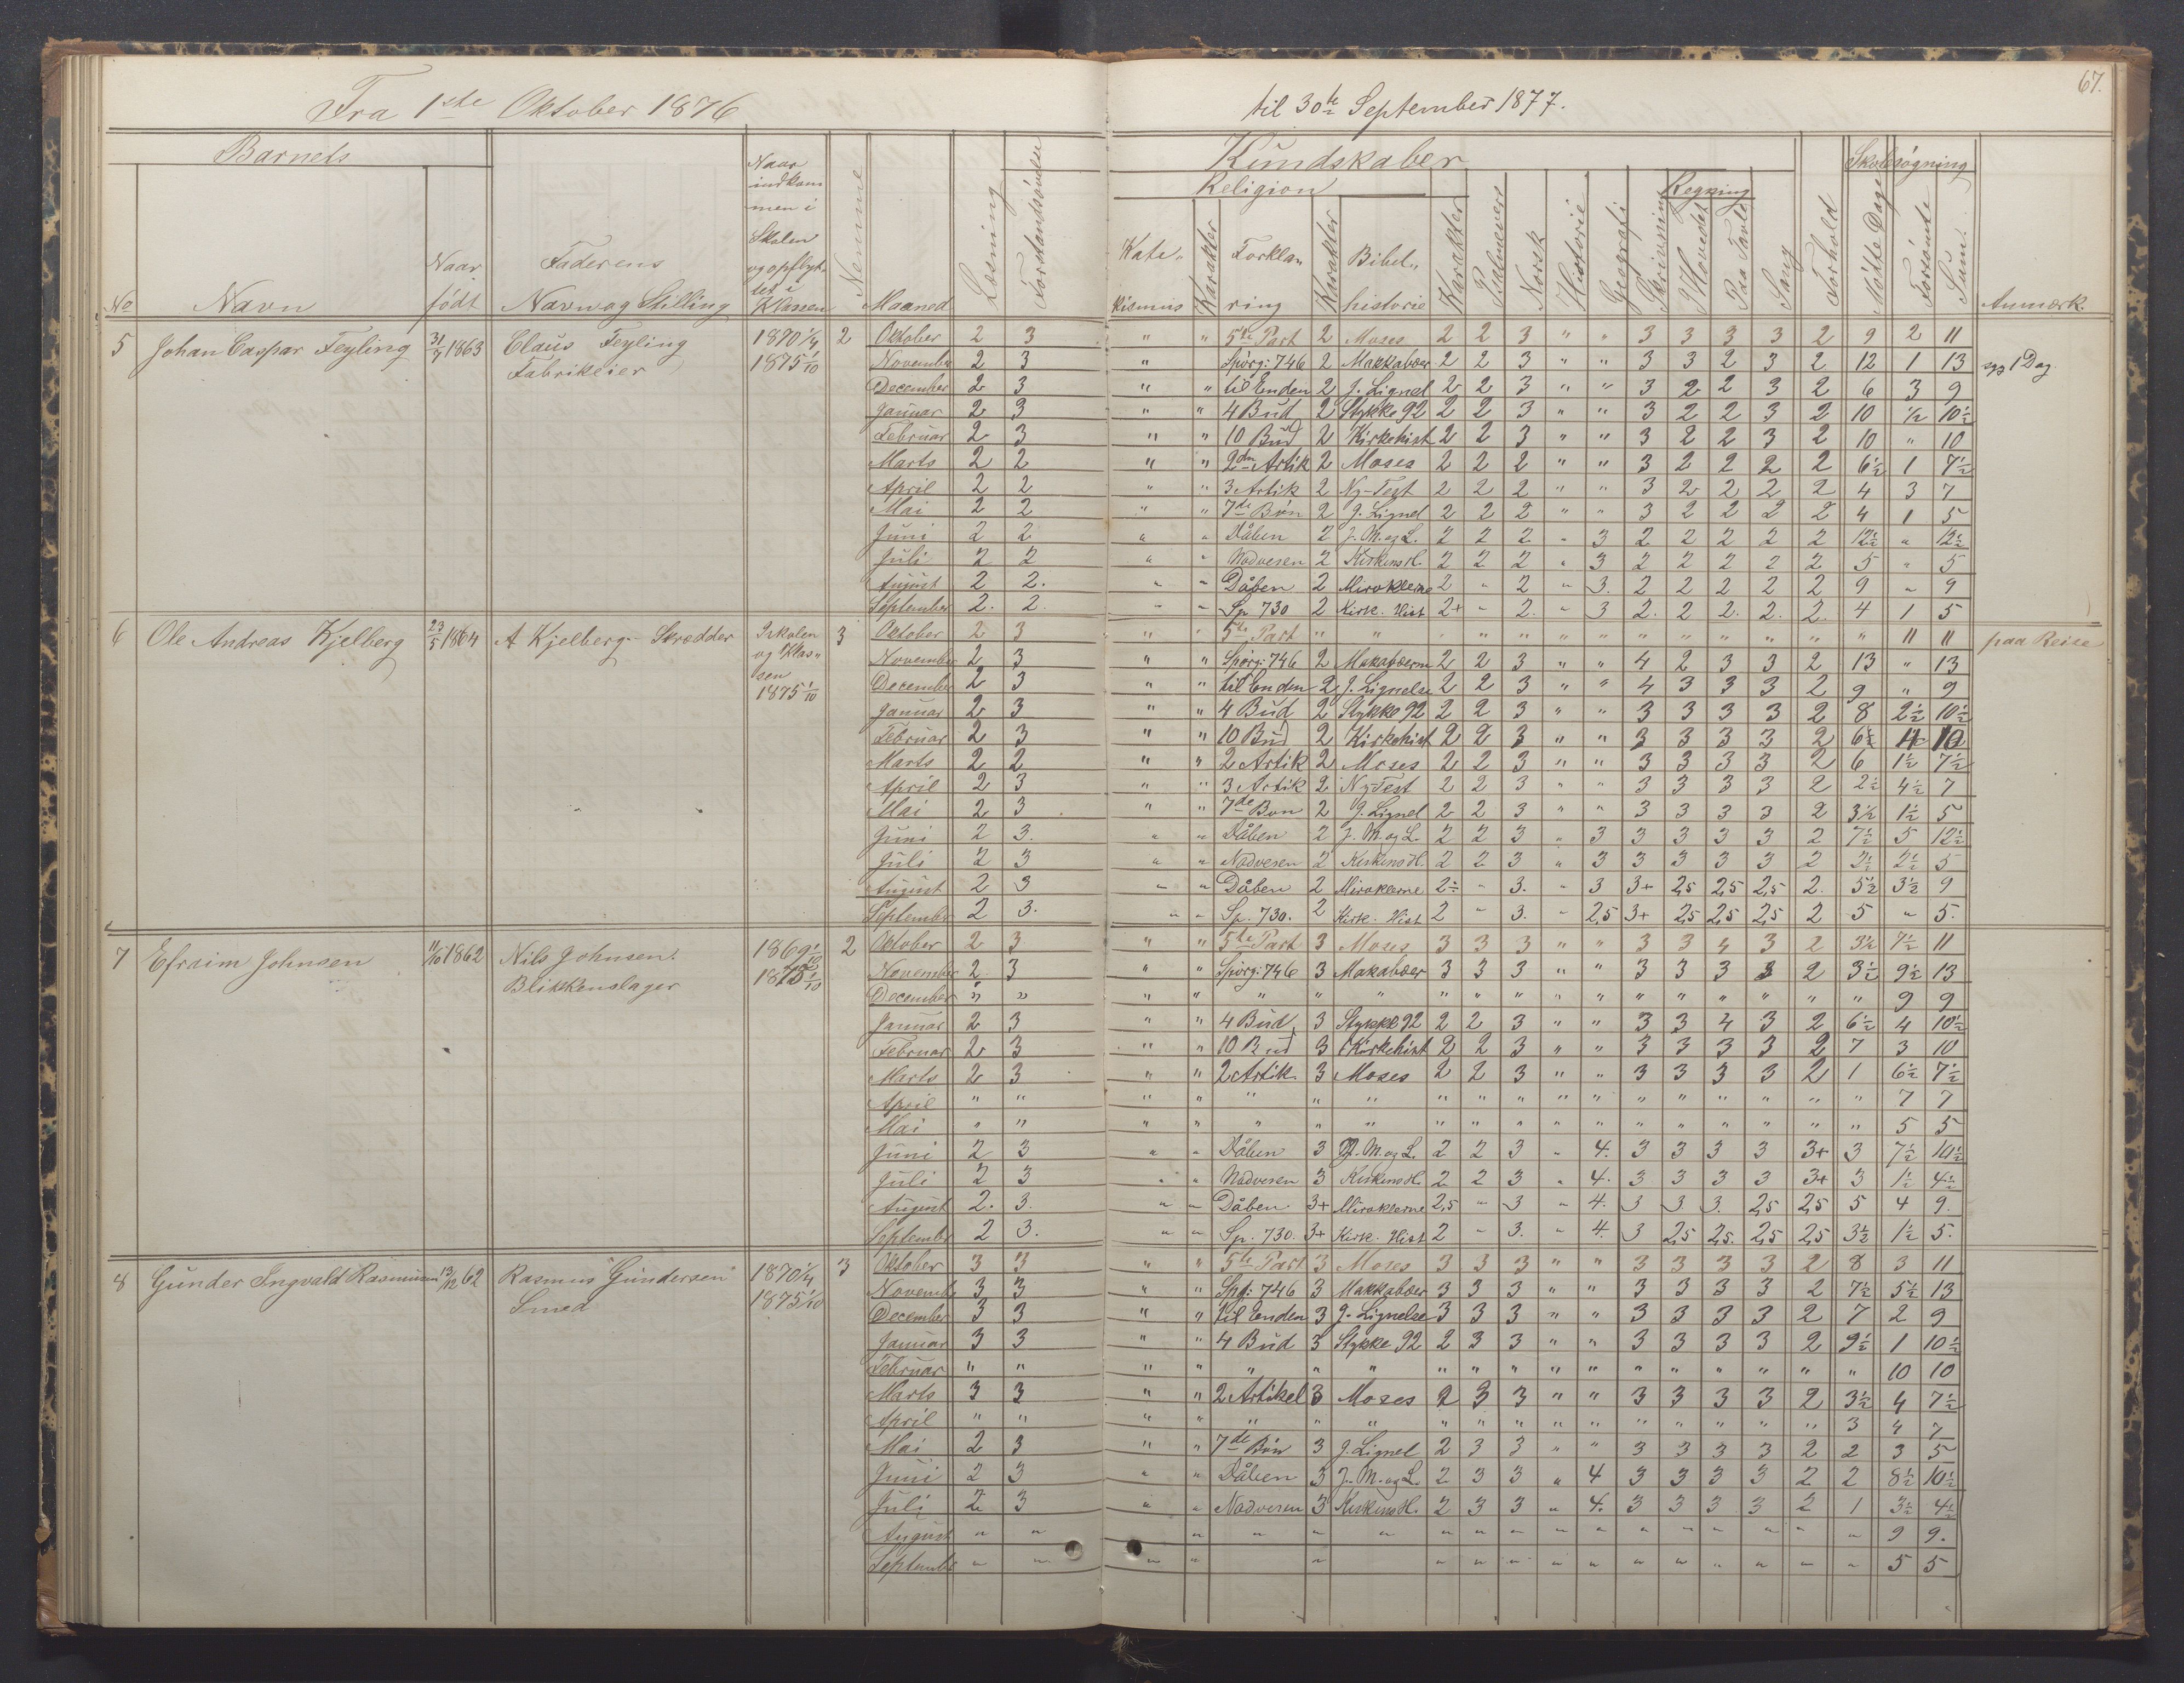 67.
Fra 1ste Oktober 1876 til 30te September 1877.
Barnets Kundskaber Skolesøgning
Religion Regning
No Navn Naar født Faderens Navn og Stilling Naar indkommen i Skolen og opflyttet i Klassen Nemme Maaned Læsning Forstandsøvelse Katekismus Karakter Forklaring Karakter Bibelhistorie Karakter Psalmevers Norsk Historie Geografi Skrivning I Hovedet Paa Tavle Sang Forhold Mødte Dage Forsømte Sum. Anmærk.
5 Johan Caspar Feyling 31/7 1863 Claus Feyling 1870 1/4 2 Oktober 2 3 " " 5te Part 2 Moses 2 2 3 " " 3 3 3 3 2 9 2 11
Fabrikeier 1875 1/10 November 2 3 " Spörg: 746 2 Makkabæer 2 2 3 " " 3 3 2 3 2 12 1 13 syg 1 Dag.
December 2 3 " " til Enden 2 J. Lignel 2 2 3 " " 3 2 2 3 2 6 3 9
Januar 2 3 " " 4 Bud 2 Stykke 92 2 2 3 " " 3 2 2 3 2 10 1/2 10 1/2
Februar 2 3 " " 10 Bud 2 Kirkehist 2 2 3 " " 3 2 2 3 2 10 " 10
Marts 2 2 " " 2den Artik 2 Moses 2 2 2 " " 3 2 2 2 2 6 1/2 1 7 1/2
April 2 2 " " 3 Artik 2 Ny-Test 2 2 2 " " 3 2 2 2 2 4 3 7
Mai 2 2 " " 7de Bön 2 J. Lignel 2 2 2 " " 3 2 2 2 2 4 1 5
Juni 2 2 " " Dåben 2 J. M. og L. 2 2 2 " 3 2 2 2 2 2 12 1/2 " 12 1/2
Juli 2 2 " " Nadveren 2 Kirkens H. 2 2 2 " 3 2 2 2 2 2 5 " 5
August 2 2. " " Dåben 2 Miraklerne 2 " 2 " 3. 2 2 2 2 2 9 " 9
September 2. 2. " " Sp. 730 2 Kirk. Hist 2+ " 2. " 3 2. 2 2. 2. 2. 4 1 5
6 Ole Andreas Kjelberg 23/5 1864 A Kjelberg - Skrædder I skolen 3 Oktober 2 3 " " 5te Part " " " " " " " " " " " " " 11 11 paa Reise
og Klassen November 2 3 " " Spörg: 746 2 Makabæerne 2 2 3 " " 4 2 3 3 2 13 " 13
1875 1/10 December 2 3 " " til Enden 2 J. Lignelse 2 2 3 " " 4 3 3 3 2 9 " 9
Januar 2 3 " " 4 Bud 2 Stykke 92 2 2 3 " " 3 3 3 3 2 8 2 1/2 10 1/2
Februar 2 3 " " 10 Bud 2 Kirkehist 2 2 3 " " 3 3 3 3 2 6 1/2 10
Marts 2 2 " " 2 Artik 2 Moses 2 2 3 " " 3 3 3 3 2 6 1 1/2 7 1/2
April 2 3 " " 3 Artik 2 Ny Test 2 2 3 " " 3 3 3 3 2 2 1/2 4 1/2 7
Mai 2 3 " " 7de Bon 2 J. Lignel 2 2 3 " " 3 3 3 3 2 3 1/2 1 1/2 5
Juni 2 3. " " Dåben 2 J. M. og L. 2 2 3 " 3 3 3 3 3 2 7 1/2 5 12 1/2
Juli 2 3 " " Nadveren 2 Kirkens H. 2 2 3 " 3 3 3 3 3 2 2 1/2 2 1/2 5
August 2 3 " " Dåben 2 Miraklerne 2÷ " 3. " 3 3+ 2,5 2,5 2,5 2. 5 1/2 3 1/2 9
September 2 3. " " Sp. 730. 2 Kirk. Hist 2 " 3. " 2,5 3+ 2,5 2,5 2,5 2 5 " 5.
7 Efraim Johnsen 11/10 1862 Nils Johnsen. 1869 1/10 2 Oktober 2 3 " " 5te Part 3 Moses 3 3 3 " " 3 3 4 3 2 3 1/2 7 1/2 11
Blikkenslager 1875 1/10 November 2 3 " " Spörg: 746 3 Makabæer 3 3 3 " " 3 3 3 3 2 3 1/2 9 1/2 13
December " " " " " " " " " " " " " " " " " " 9 9
Januar 2 3 " " 4 Bud 3 Stykke 92 2 2 3 " " 3 3 4 3 2 6 1/2 4 10 1/2
Februar 2 3 " " 10 Bud 3 Kirkehist 2 2 3 " " 3 3 3 3 2 7 3 10
Marts 2 3 " " 2 Artik. 3 Moses 2 2 3 " " 3 3 3 3 2 1 6 1/2 7 1/2
April " " " " " " " " " " " " " " " " " " 7 7
Mai " " " " " " " " " " " " " " " " " " 5 5
Juni 2 3 " " Dåben 3 J. M. og L. 2 2 3 " 4. 3 3 3 3 3+ 3 7 1/2 10 1/2
Juli 2 3 " " Nadveren 3 Kirkens H. 2 2 3 " 4. 3 3 3 3 3+ 3 1 1/2 4 1/2
August 2. 3. " " Dåben 3+ Miraklerne 2,5 " 3 " 4. 3 3. 3. 2,5 2,5 5 4 9.
September 2 3. " " Sp. 730. 3+ Kirk. Hist 2 " 3. " 4. 3 2,5 2,5. 2,5 2,5 3 1/2 1 1/2 5.
8 Gunder Ingvald Rasmusen 13/12 62 Rasmus Gundersen 1870 1/4 3 Oktober 3 3 " " 5te Part 3 Moses 3 3 3 " " 3 3 3 3 2 8 3 11
Smed 1875 1/10 Novembe 3 3 " " Spg: 746 3 Makkabæer 3 3 3 " " 3 3 3 3 2 7 1/2 5 1/2 13
December 3 3 " " til Enden 3 J. Lignelse 3 3 3 " " 3 3 3 3 2 7 2 9
Januar 3 3 " " 4 Bud 3 Stykke 92 2 3 3 " " 3 3 3 3 2 9 1/2 1 10 1/2
Februar " " " " " " " " " " " " " " " " " " 10 10
Marts 3 3 " " 2 Artikel 3 Moses 2 3 3 " " 3 3 3 3 2 3 1/2 4 7 1/2
April " " " " " " " " " " " " " " " " " 3 4 7
Mai 2 3 " " 7de Bön 3 J. Lignel 2 3 3 " " 3 3 3 3 2 2 3 5
Juni 2 3 " " Dåben 3 J. M. og L. 2 3 3 " 4 3 3 3 3 2 2 8 1/2 10 1/2
Juli 2 3 " " Nadveren 3 Kirkens H. 2 3 3 " 4. 3 3 3 3 2 1 3 1/2 4 1/2
August " " " " " " " " " " " " " " " " " 9 9.
September " " " " " " " " " " " " " " " " 5 5